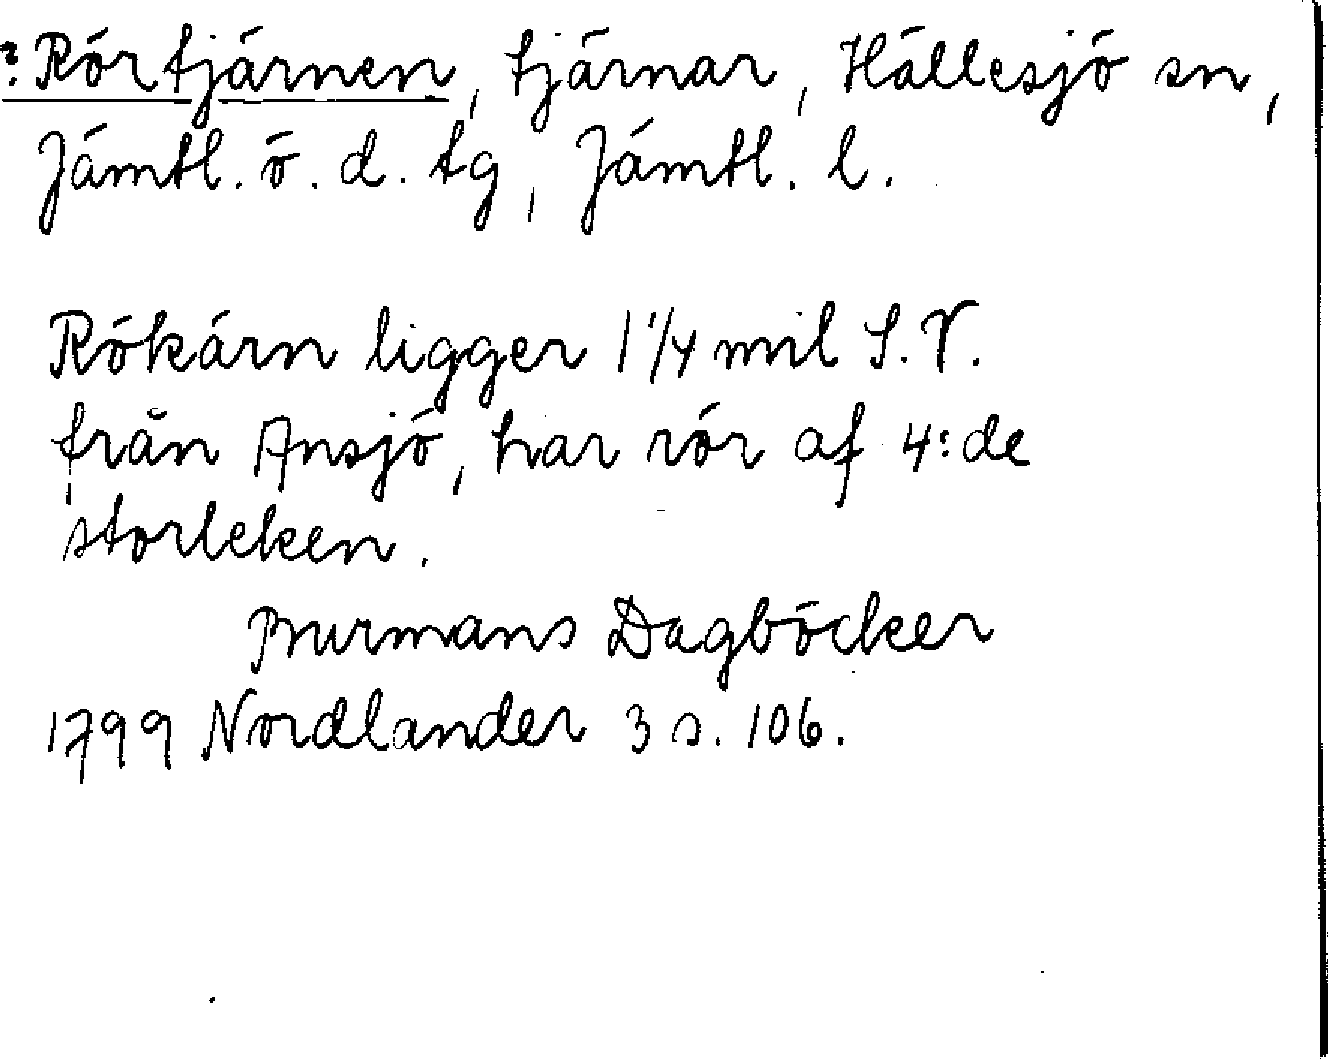 ? Rörtjärnen, tjärnar, Hällesjö sn,
Jämtl. ö. d. tg, Jämtl. l.
Rökärn ligger 1 1/4 mil S.V.
från Ansjö, har rör af 4:de
storleken.
Burmans Dagböcker
1799 Nordlander 3 s. 106.